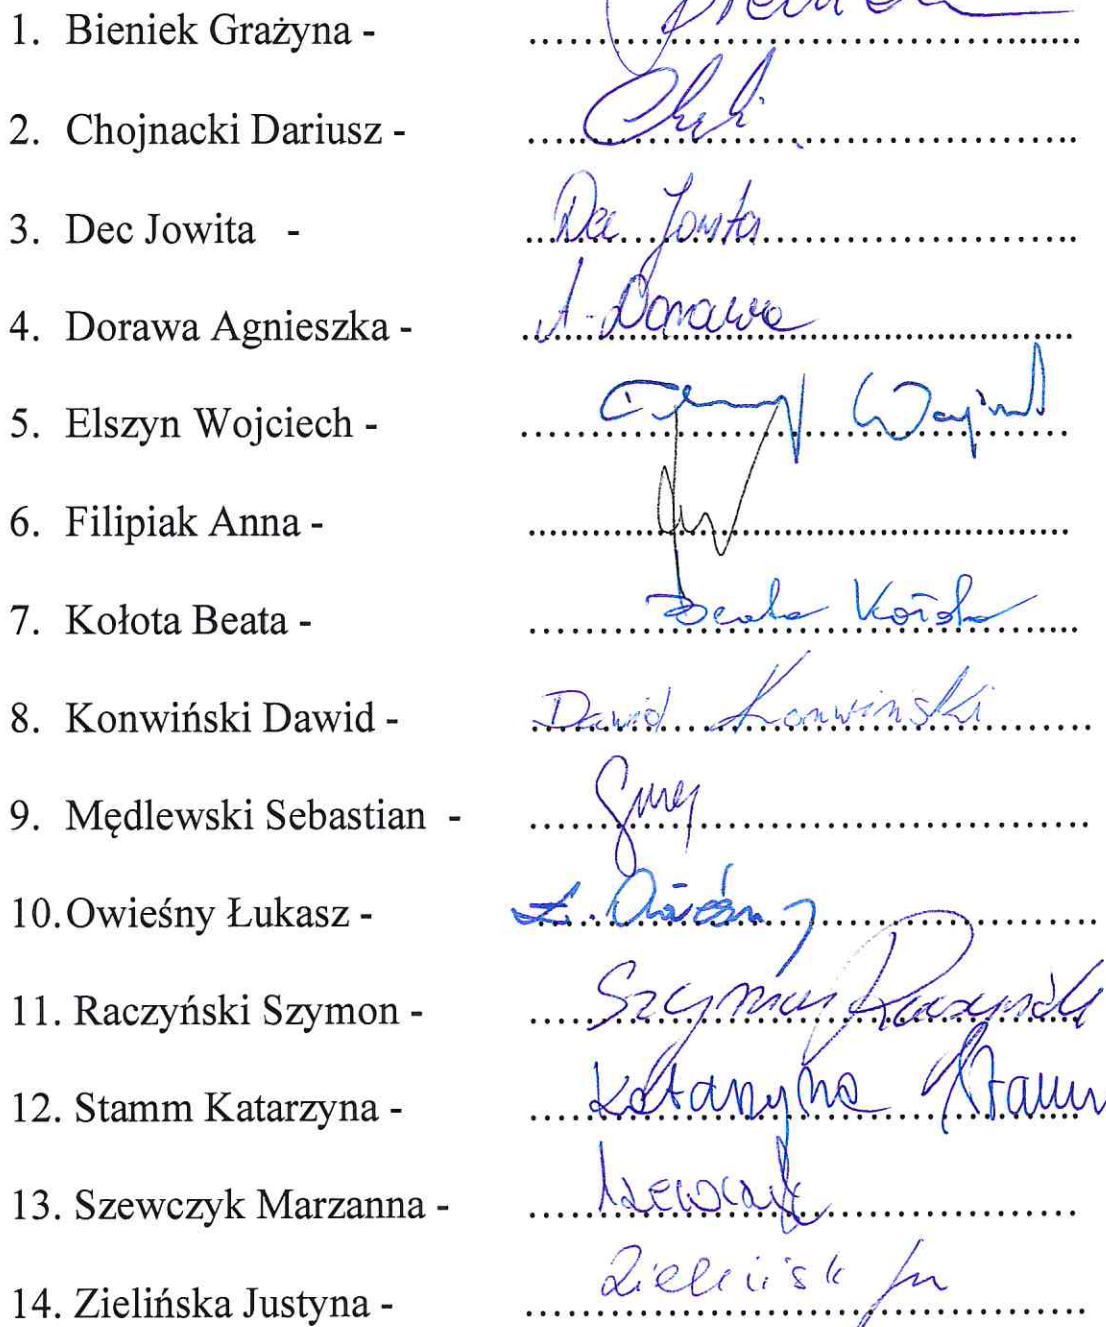 1. Bieniek Grażyna - Bieniek
2. Chojnacki Dariusz -
3. Dec Jowita - Dec Jowita
4. Dorawa Agnieszka - A. Dorawa
5. Elszyn Wojciech -
6. Filipiak Anna -
7. Kołota Beata - Beata Kołota
8. Konwiński Dawid - Dawid Konwiński
9. Mędlewski Sebastian -
10. Owieśny Łukasz - Ł. Owieśny
11. Raczyński Szymon - Szymon Raczyński
12. Stamm Katarzyna - Katarzyna Stamm
13. Szewczyk Marzanna - Szewczyk
14. Zielińska Justyna -